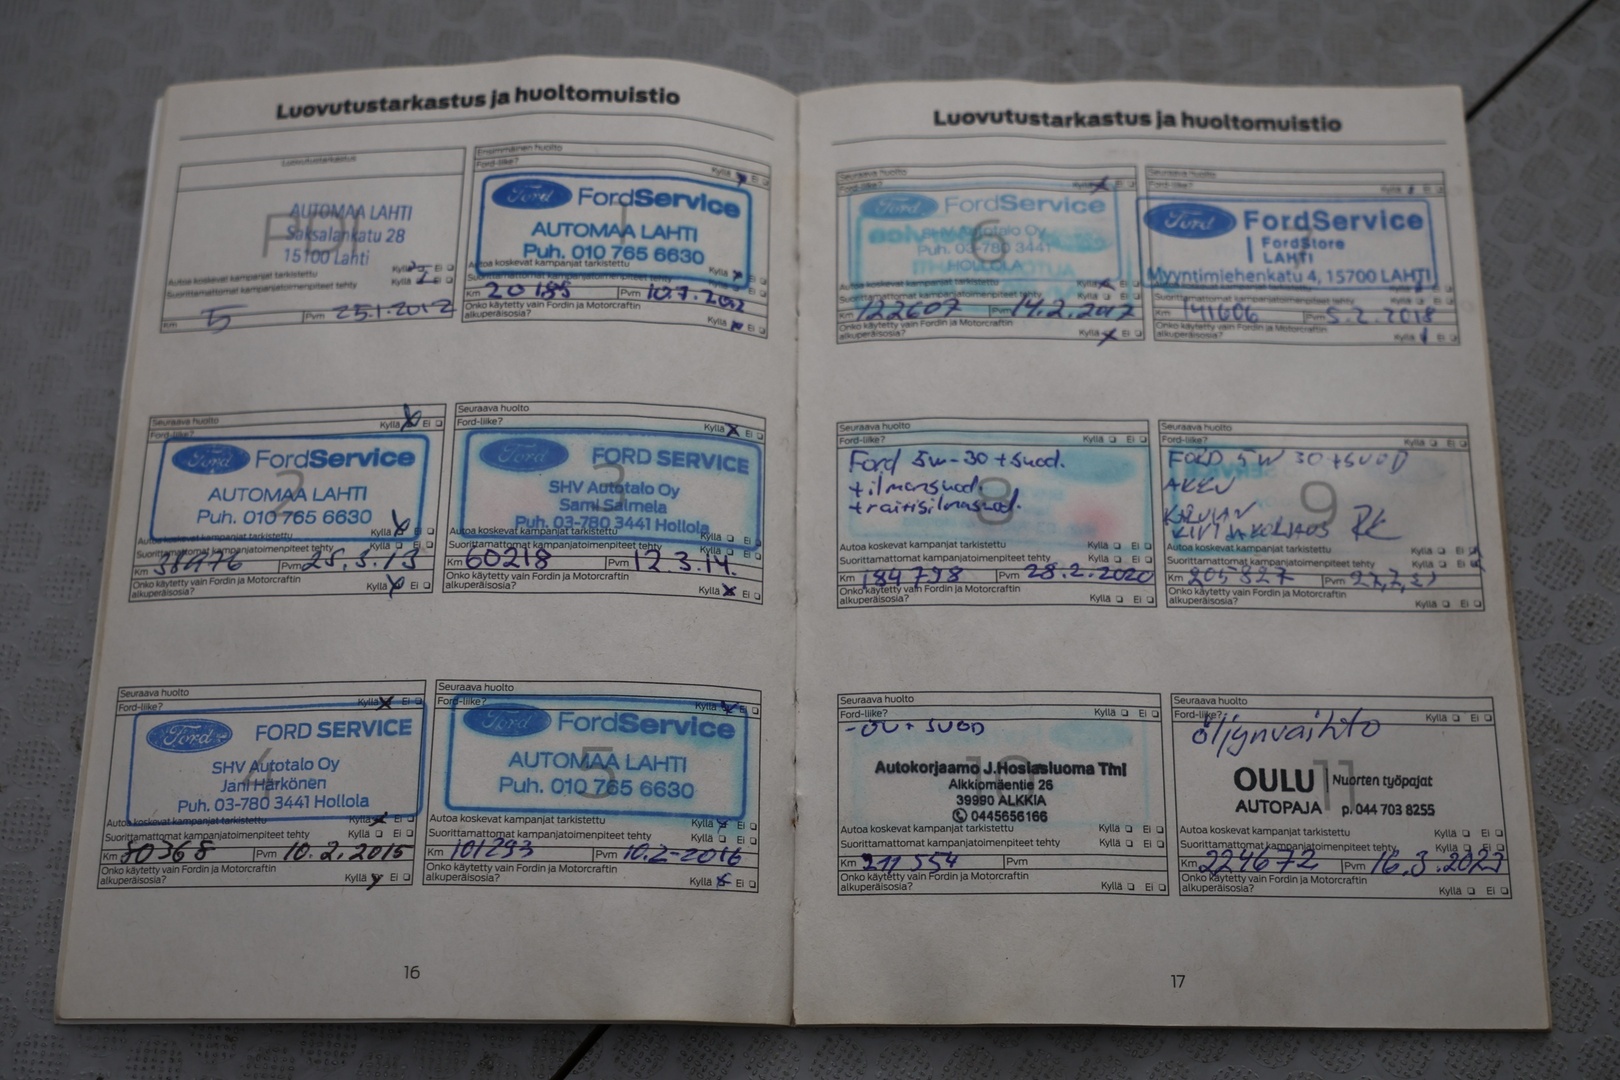 Luovutustarkastus ja huoltomuistio
Luovutustarkastus
PDI
AUTOMAA LAHTI
Saksalankatu 28
15100 Lahti
Autoa koskevat kampanjat tarkistettu Kyllä Ei
Suorittamattomat kampanjatoimenpiteet tehty Kyllä Ei
Km 5 Pvm 25.1.2012
Ensimmäinen huolto
Ford-liike? Kyllä Ei
1
Ford FordService
AUTOMAA LAHTI
Puh. 010 765 6630
Autoa koskevat kampanjat tarkistettu
Suorittamattomat kampanjatoimenpiteet tehty Kyllä Ei
Km 20185 Pvm 10.7.2012
Onko käytetty vain Fordin ja Motorcraftin
alkuperäisosia? Kyllä Ei
Seuraava huolto
Ford-liike? Kyllä Ei
2
Ford FordService
AUTOMAA LAHTI
Puh. 010 765 6630
Autoa koskevat kampanjat tarkistettu Kyllä Ei
Suorittamattomat kampanjatoimenpiteet tehty Kyllä Ei
Km Pvm 25.3.13
Onko käytetty vain Fordin ja Motorcraftin
alkuperäisosia? Kyllä Ei
Seuraava huolto
Ford-liike? Kyllä X Ei
3
Ford FORD SERVICE
SHV Autotalo Oy
Sami Salmela
Puh. 03-780 3441 Hollola
Autoa koskevat kampanjat tarkistettu Kyllä Ei
Suorittamattomat kampanjatoimenpiteet tehty Kyllä Ei
Km 60218 Pvm 12.3.14.
Onko käytetty vain Fordin ja Motorcraftin
alkuperäisosia? Kyllä X Ei
Seuraava huolto
Ford-liike? Kyllä X Ei
4
Ford FORD SERVICE
SHV Autotalo Oy
Jani Härkönen
Puh. 03-780 3441 Hollola
Autoa koskevat kampanjat tarkistettu Kyllä X Ei
Suorittamattomat kampanjatoimenpiteet tehty Kyllä Ei
Km 80368 Pvm 10.2.2015
Onko käytetty vain Fordin ja Motorcraftin
alkuperäisosia? Kyllä X Ei
Seuraava huolto
Ford-liike? Kyllä X Ei
5
Ford FordService
AUTOMAA LAHTI
Puh. 010 765 6630
Autoa koskevat kampanjat tarkistettu Kyllä X Ei
Suorittamattomat kampanjatoimenpiteet tehty Kyllä Ei
Km 101293 Pvm 10.2-2016
Onko käytetty vain Fordin ja Motorcraftin
alkuperäisosia? Kyllä X Ei
16
Luovutustarkastus ja huoltomuistio
Seuraava huolto
Ford-liike? Kyllä X Ei
6
Ford FordService
SHV Autotalo Oy
Puh. 03-780 3441
HOLLOLA
Kyllä X Ei
Suorittamattomat kampanjatoimenpiteet tehty
Km 122607 Pvm 14.2.2017
Onko käytetty vain Fordin ja Motorcraftin
alkuperäisosia? Kyllä X Ei
Seuraava huolto
Ford-liike? Kyllä Ei
Ford FordService
FordStore
LAHTI
Myyntimiehenkatu 4, 15700 LAHTI
Suorittamattomat kampanjatoimenpiteet tehty
Km 141606 Pvm 5.2.2018
Onko käytetty vain Fordin ja Motorcraftin
alkuperäisosia? Kyllä Ei
Seuraava huolto
Ford-liike? Kyllä Ei
8
Ford 5w-30 + suod.
+ilmansuod.
+raitisilmasuod.
Autoa koskevat kampanjat tarkistettu Kyllä Ei
Suorittamattomat kampanjatoimenpiteet tehty Kyllä Ei
Km 184798 Pvm 28.2.2020
Onko käytetty vain Fordin ja Motorcraftin
alkuperäisosia? Kyllä Ei
Seuraava huolto
Ford-liike? Kyllä Ei
9
FORD 5W 30 +SUOD
AKKU
Autoa koskevat kampanjat tarkistettu Kyllä Ei
Suorittamattomat kampanjatoimenpiteet tehty Kyllä Ei
Km 205827 Pvm
Onko käytetty vain Fordin ja Motorcraftin
alkuperäisosia? Kyllä Ei
Seuraava huolto
Ford-liike? Kyllä Ei
10
-ÖV + SUOD
Autokorjaamo J.Hosiasluoma Tmi
Alkkiomäentie 26
39990 ALKKIA
0445656166
Autoa koskevat kampanjat tarkistettu Kyllä Ei
Suorittamattomat kampanjatoimenpiteet tehty Kyllä Ei
Km 211554 Pvm
Onko käytetty vain Fordin ja Motorcraftin
alkuperäisosia? Kyllä Ei
Seuraava huolto
Ford-liike? Kyllä Ei
11
öljynvaihto
OULU Nuorten työpajat
AUTOPAJA p. 044 703 8255
Autoa koskevat kampanjat tarkistettu Kyllä Ei
Suorittamattomat kampanjatoimenpiteet tehty Kyllä Ei
Km 224672 Pvm 16.3.2023
Onko käytetty vain Fordin ja Motorcraftin
alkuperäisosia? Kyllä Ei
17